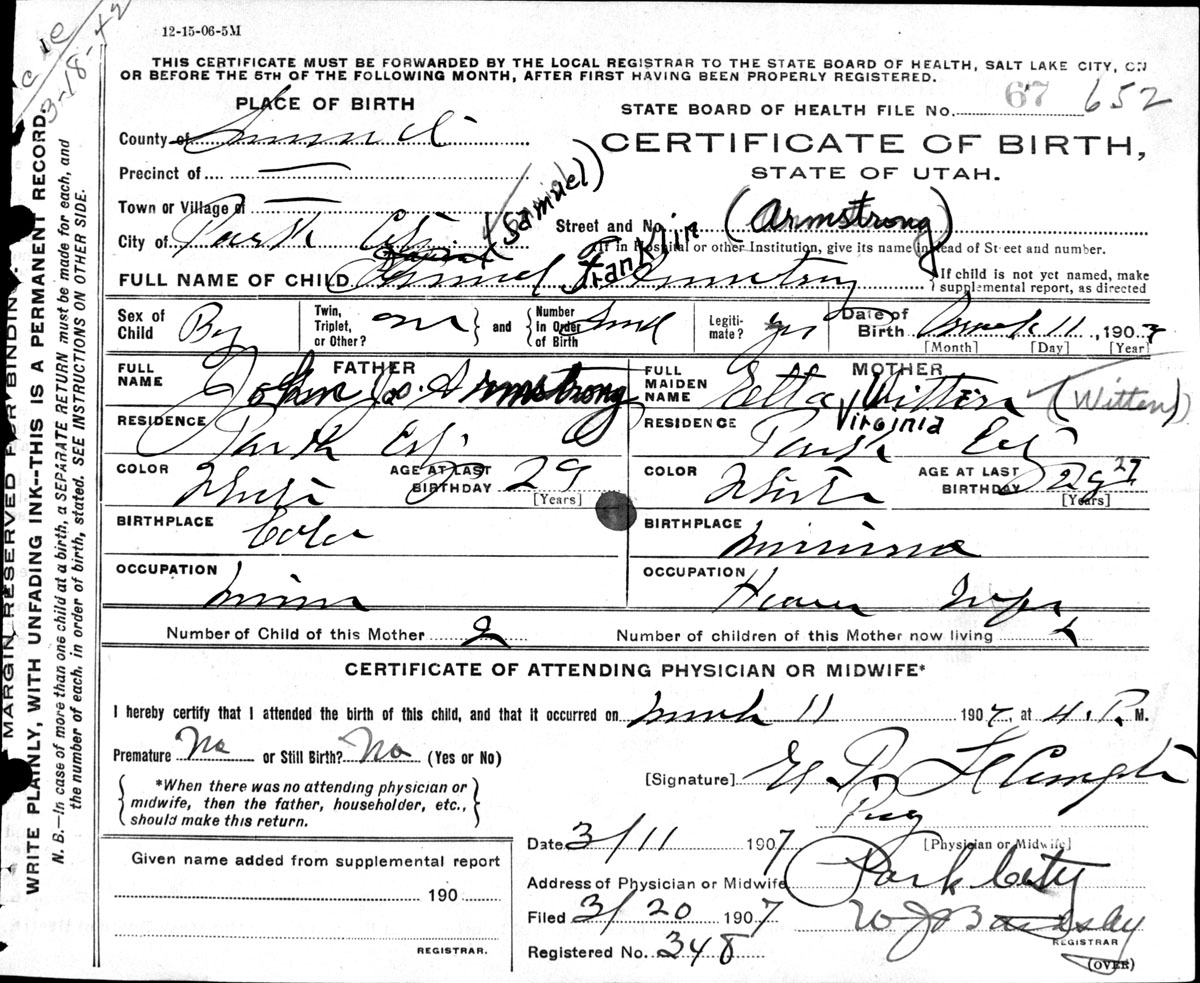 12-15-06-5M
3-18-42
THIS CERTIFICATE MUST BE FORWARDED BY THE LOCAL REGISTRAR TO THE STATE BOARD OF HEALTH, SALT LAKE CITY, ON
OR BEFORE THE 5TH OF THE FOLLOWING MONTH, AFTER FIRST HAVING BEEN PROPERLY REGISTERED.
PLACE OF BIRTH
STATE BOARD OF HEALTH FILE No. 67 652
County of Summit
CERTIFICATE OF BIRTH,
STATE OF UTAH.
Precinct of —
Town or Village of —
Street and No.
City of Park City
If in Hospital or other Institution, give its name instead of Street and number.
(Samuel) Franklin (Armstrong)
FULL NAME OF CHILD Samuel F. Armstrong
If child is not yet named, make
supplemental report, as directed
Sex of
Child Boy
Twin,
Triplet,
or Other?
and
Number
In Order
of Birth
Legiti-
mate? yes
Date of
Birth March 11, 1907
[Month] [Day] [Year]
FATHER
FULL
NAME John Js. Armstrong
MOTHER
FULL
MAIDEN
NAME Etta Virginia Witten (Witten)
RESIDENCE Park City
RESIDENCE Park City
COLOR White
AGE AT LAST
BIRTHDAY 29
[Years]
COLOR White
AGE AT LAST
BIRTHDAY 27
[Years]
BIRTHPLACE Color
BIRTHPLACE
OCCUPATION Miner
OCCUPATION House Wife
Number of Child of this Mother 2
Number of children of this Mother now living
CERTIFICATE OF ATTENDING PHYSICIAN OR MIDWIFE*
I hereby certify that I attended the birth of this child, and that it occurred on March 11 1907, at 4 P. M.
Premature No or Still Birth? No (Yes or No)
*When there was no attending physician or
midwife, then the father, householder, etc.,
should make this return.
[Signature]
[Physician or Midwife]
Date 3/11 1907
Address of Physician or Midwife Park City
Filed 3/20 1907
REGISTRAR
Registered No. 348
(OVER)
Given name added from supplemental report
190
REGISTRAR.
MARGIN RESERVED FOR BINDING.
WRITE PLAINLY, WITH UNFADING INK--THIS IS A PERMANENT RECORD.
N. B.—In case of more than one child at a birth, a SEPARATE RETURN must be made for each, and
the number of each, in order of birth, stated. SEE INSTRUCTIONS ON OTHER SIDE.